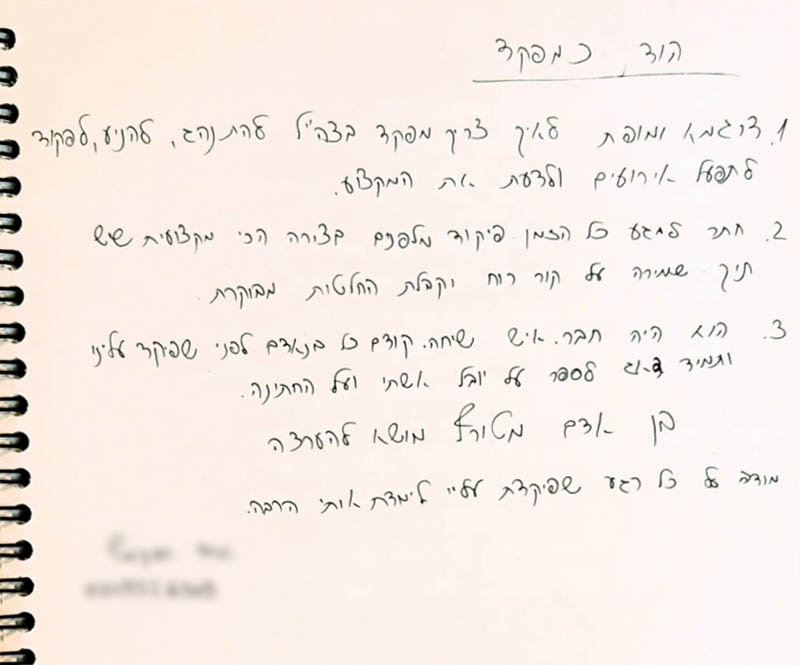 הוד כמפקד
1. דוגמא ומופת לאיך צריך מפקד בצה"ל להתנהג, להניע, לפקוד
לתפעל אירועים ולדעת את המקצוע.
2. חתר למגע כל הזמן פיקוד מלפנים בצירה הכי מקצועית שיש
תוך שמירה על קור רוח וקבלת החלטות מבוקרת.
3. הוא היה חבר. איש שיחה. קודם כל בנאדם לפני שפיקד עלינו
ותמיד דאג לספר על יובל אשתו ועל החתונה.
בן אדם מטורף מושא להערצה
מודה על כל רגע שפיקדת עליי לימדת אותי הרבה.